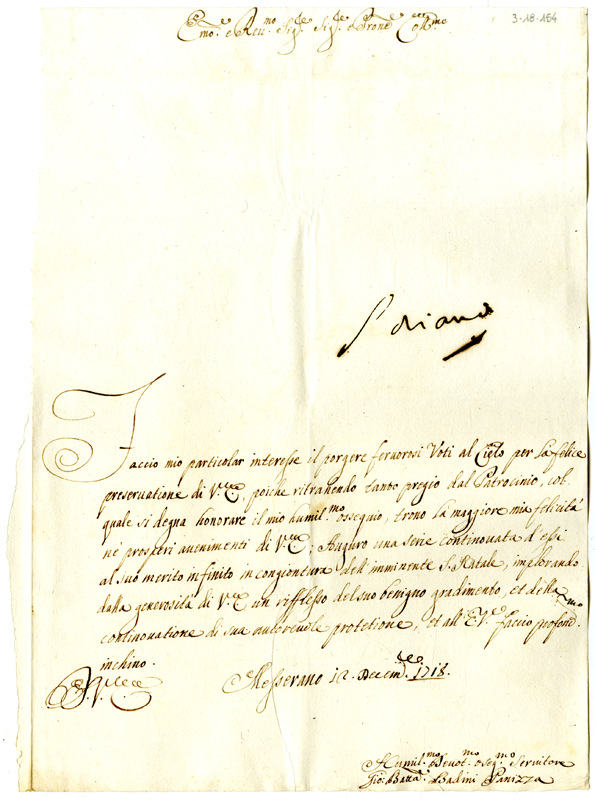 3-18-164
Em.o e Reu.mo Sig.e Sig.e e Prone Coll.mo
Faccio mio particolar interesse il porgere feruorosi Voti al Cielo per la felice
preseruatione di V.E., poiche ritrahendo tanto pregio dal Patrocinio, col
quale si degna honorare il mio humil.mo ossequio, trono la maggiore mia felicità
né prosperi auenimenti di V.E; Auguro una serie continouata d'essi
al suo merito infinito in congiontura dell'imminente S. Natale, implorando
dalla generosità di V.E un riflesso del suo benigno gradimento, et della
continouatione di sua autereuole protetione, et all'E.V. faccio profond.mo
inchino.
Messerano 12 Decem.e 1718.
Humil.mo Deuot.mo Oseq.mo Seruitore
Gio: Batta Badini Panizza